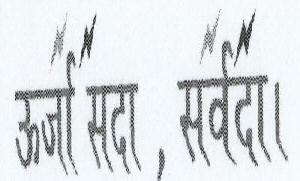 ऊर्जा सदा, सर्वदा।